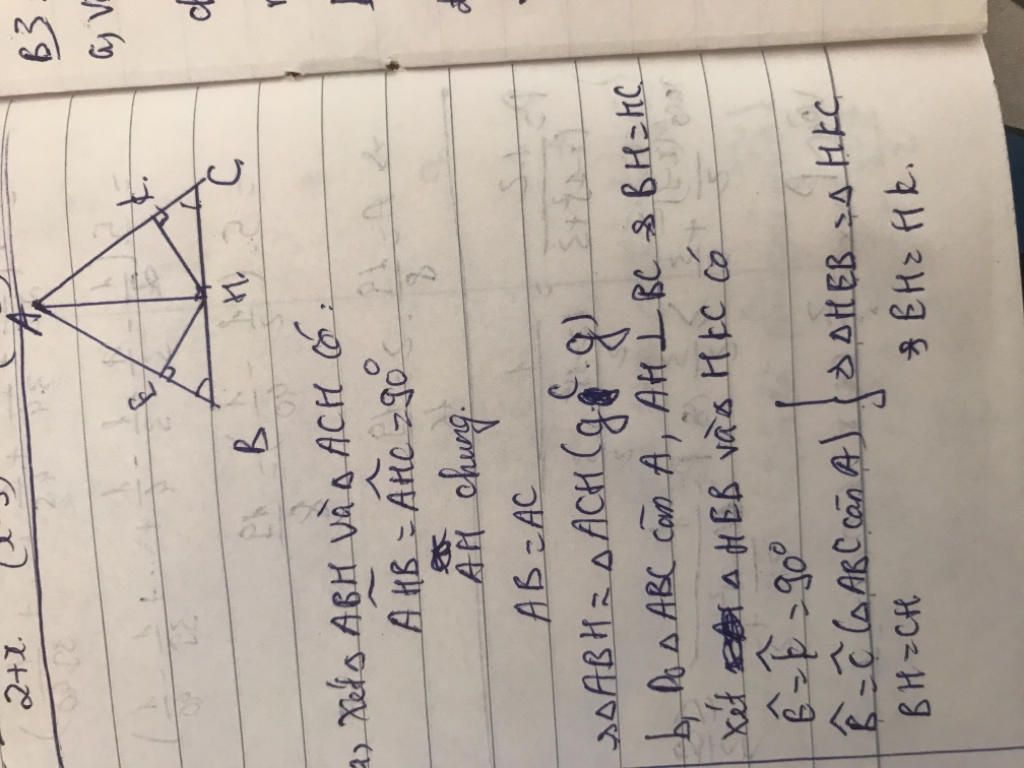 B3:
a, V
2+x
A
E
K
B
H
C
a, Xét Δ ABH và Δ ACH có:
AHB = AHC = 90°
AH chung.
AB = AC
=> Δ ABH = Δ ACH (g.c.g)
b, Do Δ ABC cân A, AH ⊥ BC => BH = HC
Xét Δ HEB và Δ HKC có
Ê = K̂ = 90°
B̂ = Ĉ (Δ ABC cân A) } => Δ HEB = Δ HKC
BH = CH => EH = HK.